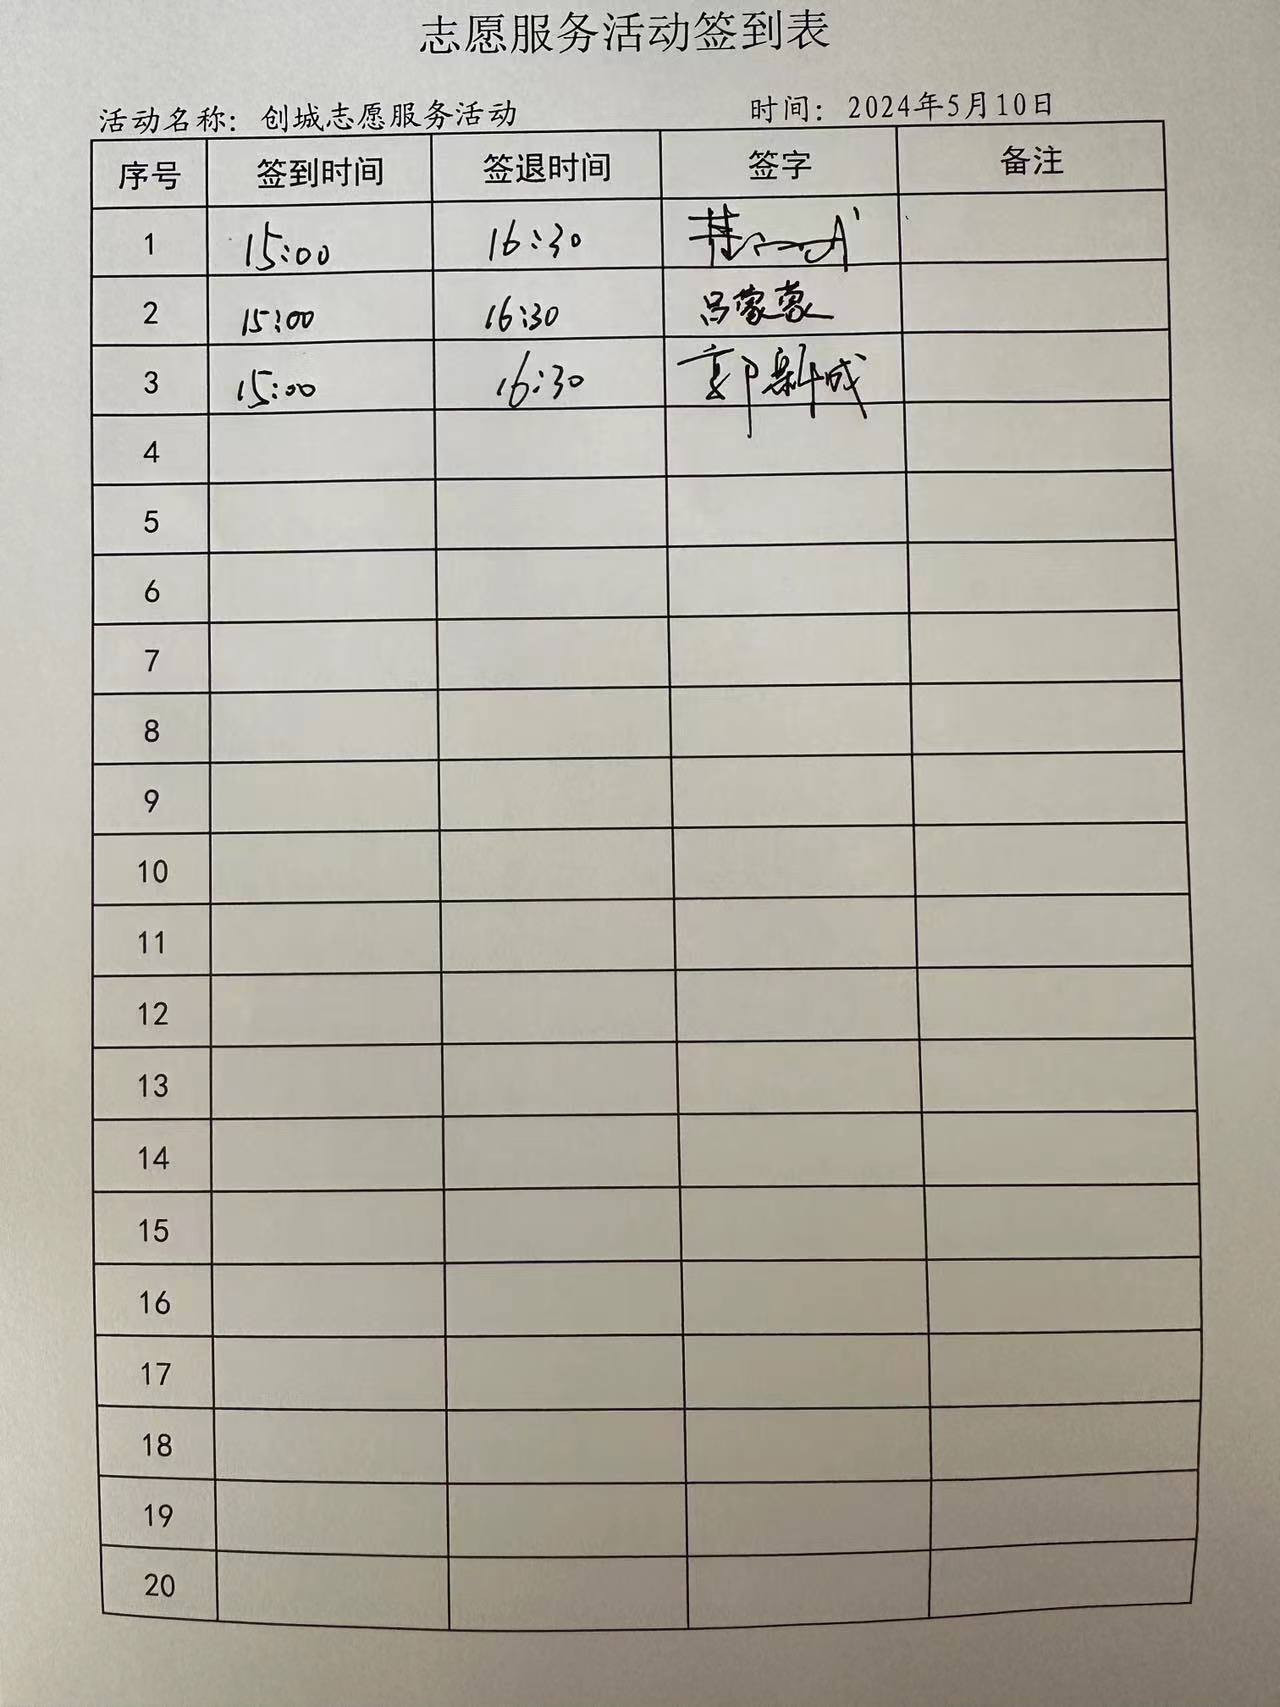 志愿服务活动签到表
活动名称：创城志愿服务活动 时间：2024年5月10日
序号 签到时间 签退时间 签字 备注
1 15:00 16:30
2 15:00 16:30 吕蒙蒙
3 15:00 16:30 郭新成
4
5
6
7
8
9
10
11
12
13
14
15
16
17
18
19
20